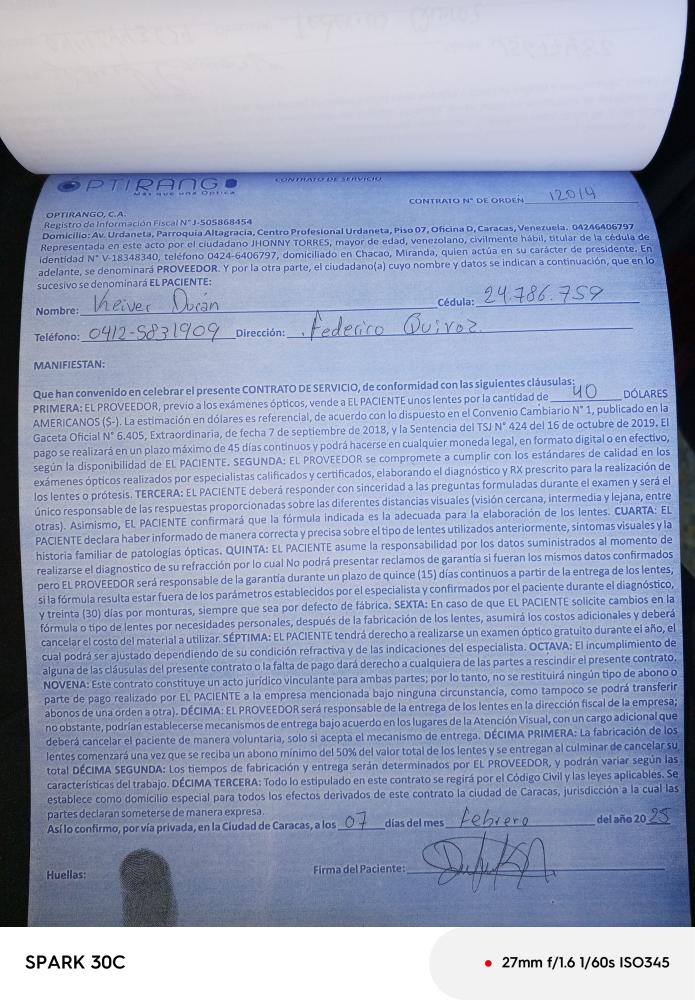 OPTIRANGO
Más que una Óptica
CONTRATO DE SERVICIO
CONTRATO N° DE ORDEN 12014
OPTIRANGO, C.A.
Registro de Información Fiscal N° J-505868454
Domicilio: Av. Urdaneta, Parroquia Altagracia, Centro Profesional Urdaneta, Piso 07, Oficina D, Caracas, Venezuela. 04246406797
Representada en este acto por el ciudadano JHONNY TORRES, mayor de edad, venezolano, civilmente hábil, titular de la cédula de
identidad N° V-18348340, teléfono 0424-6406797, domiciliado en Chacao, Miranda, quien actúa en su carácter de presidente. En
adelante, se denominará PROVEEDOR. Y por la otra parte, el ciudadano(a) cuyo nombre y datos se indican a continuación, que en lo
sucesivo se denominará EL PACIENTE:
Nombre: Kleiver Durán Cédula: 24.786.759
Teléfono: 0412-5831909 Dirección: Federico Quiroz
MANIFIESTAN:
Que han convenido en celebrar el presente CONTRATO DE SERVICIO, de conformidad con las siguientes cláusulas:
PRIMERA: EL PROVEEDOR, previo a los exámenes ópticos, vende a EL PACIENTE unos lentes por la cantidad de 40 DÓLARES
AMERICANOS ($-). La estimación en dólares es referencial, de acuerdo con lo dispuesto en el Convenio Cambiario N° 1, publicado en la
Gaceta Oficial N° 6.405, Extraordinaria, de fecha 7 de septiembre de 2018, y la Sentencia del TSJ N° 424 del 16 de octubre de 2019. El
pago se realizará en un plazo máximo de 45 días continuos y podrá hacerse en cualquier moneda legal, en formato digital o en efectivo,
según la disponibilidad de EL PACIENTE. SEGUNDA: EL PROVEEDOR se compromete a cumplir con los estándares de calidad en los
exámenes ópticos realizados por especialistas calificados y certificados, elaborando el diagnóstico y RX prescrito para la realización de
los lentes o prótesis. TERCERA: EL PACIENTE deberá responder con sinceridad a las preguntas formuladas durante el examen y será el
único responsable de las respuestas proporcionadas sobre las diferentes distancias visuales (visión cercana, intermedia y lejana, entre
otras). Asimismo, EL PACIENTE confirmará que la fórmula indicada es la adecuada para la elaboración de los lentes. CUARTA: EL
PACIENTE declara haber informado de manera correcta y precisa sobre el tipo de lentes utilizados anteriormente, síntomas visuales y la
historia familiar de patologías ópticas. QUINTA: EL PACIENTE asume la responsabilidad por los datos suministrados al momento de
realizarse el diagnostico de su refracción por lo cual No podrá presentar reclamos de garantía si fueran los mismos datos confirmados
pero EL PROVEEDOR será responsable de la garantía durante un plazo de quince (15) días continuos a partir de la entrega de los lentes,
si la fórmula resulta estar fuera de los parámetros establecidos por el especialista y confirmados por el paciente durante el diagnóstico,
y treinta (30) días por monturas, siempre que sea por defecto de fábrica. SEXTA: En caso de que EL PACIENTE solicite cambios en la
fórmula o tipo de lentes por necesidades personales, después de la fabricación de los lentes, asumirá los costos adicionales y deberá
cancelar el costo del material a utilizar. SÉPTIMA: EL PACIENTE tendrá derecho a realizarse un examen óptico gratuito durante el año, el
cual podrá ser ajustado dependiendo de su condición refractiva y de las indicaciones del especialista. OCTAVA: El incumplimiento de
alguna de las cláusulas del presente contrato o la falta de pago dará derecho a cualquiera de las partes a rescindir el presente contrato.
NOVENA: Este contrato constituye un acto jurídico vinculante para ambas partes; por lo tanto, no se restituirá ningún tipo de abono o
parte de pago realizado por EL PACIENTE a la empresa mencionada bajo ninguna circunstancia, como tampoco se podrá transferir
abonos de una orden a otra). DÉCIMA: EL PROVEEDOR será responsable de la entrega de los lentes en la dirección fiscal de la empresa;
no obstante, podrían establecerse mecanismos de entrega bajo acuerdo en los lugares de la Atención Visual, con un cargo adicional que
deberá cancelar el paciente de manera voluntaria, solo si acepta el mecanismo de entrega. DÉCIMA PRIMERA: La fabricación de los
lentes comenzará una vez que se reciba un abono mínimo del 50% del valor total de los lentes y se entregan al culminar de cancelar su
total DÉCIMA SEGUNDA: Los tiempos de fabricación y entrega serán determinados por EL PROVEEDOR, y podrán variar según las
características del trabajo. DÉCIMA TERCERA: Todo lo estipulado en este contrato se regirá por el Código Civil y las leyes aplicables. Se
establece como domicilio especial para todos los efectos derivados de este contrato la ciudad de Caracas, jurisdicción a la cual las
partes declaran someterse de manera expresa.
Así lo confirmo, por vía privada, en la Ciudad de Caracas, a los 07 días del mes Febrero del año 2025
Huellas: Firma del Paciente:
SPARK 30C 27mm f/1.6 1/60s ISO345